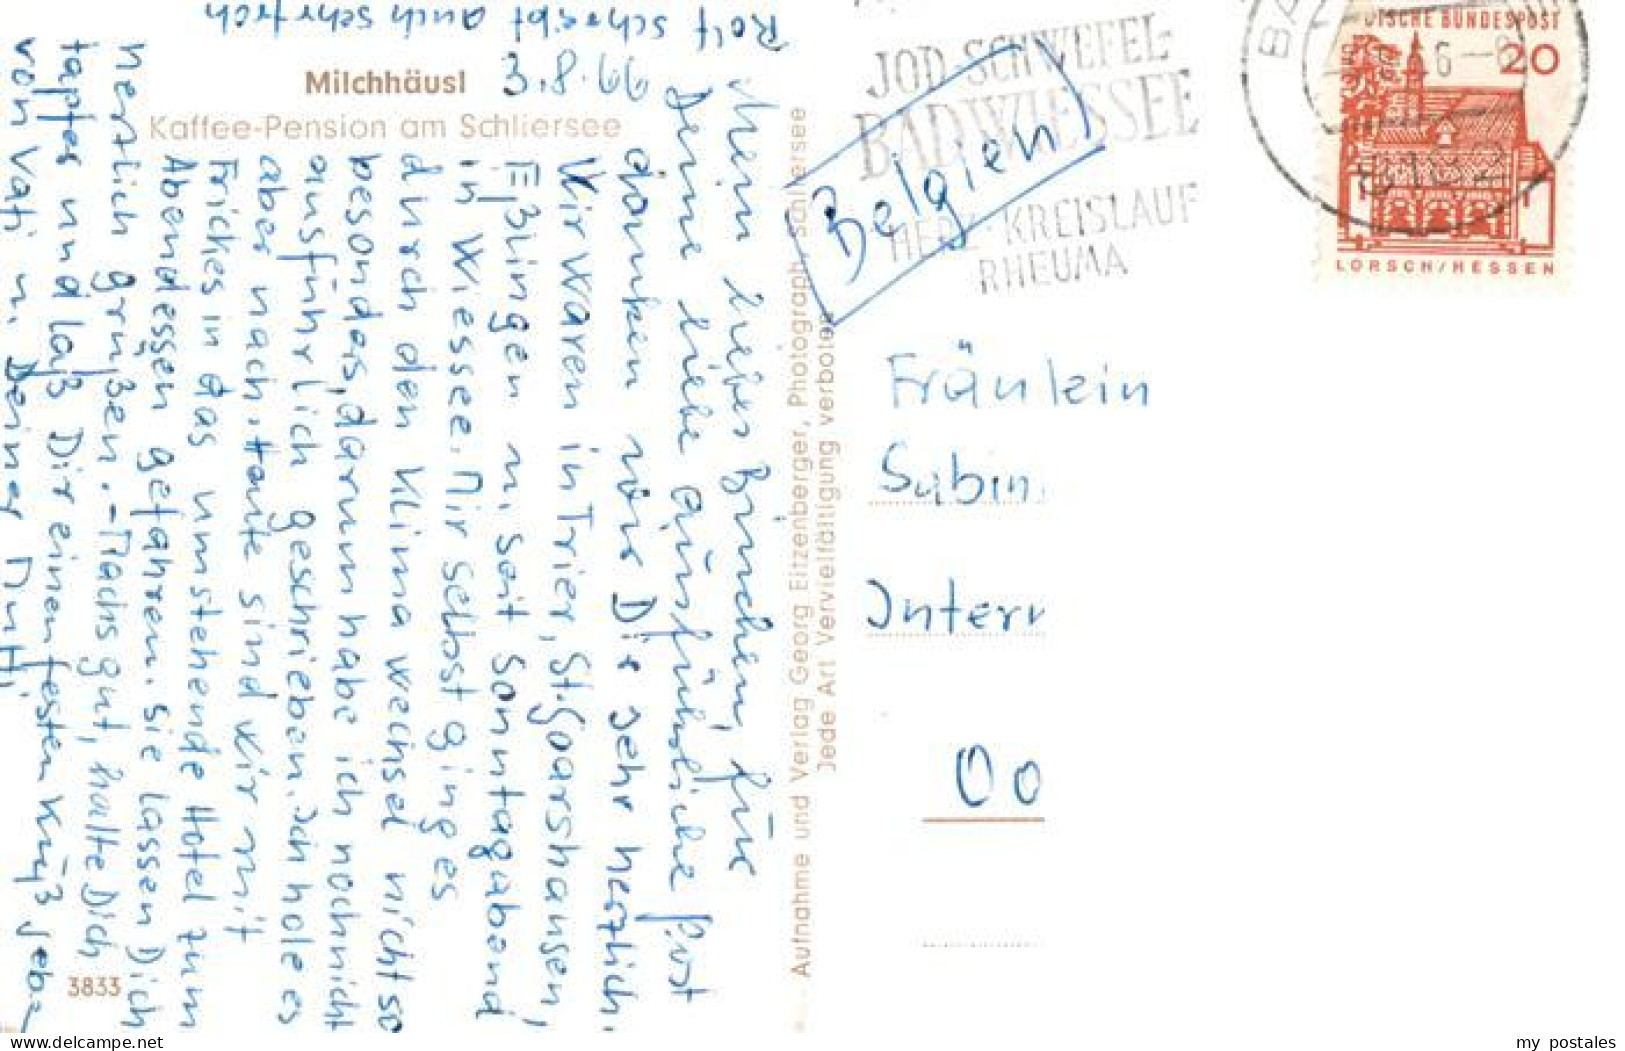 Rolf schreibt auch sehr froh
Milchhäusl
Kaffee-Pension am Schliersee
3.8.66
Mein liebes Binchen, für
Deine liebe ausführliche Post
danken wir Dir sehr herzlich.
Wir waren in Trier, St. Goarshausen,
Eßlingen u. seit Sonntagabend
in Wiessee. Mir selbst ging es
durch den Klimawechsel nicht so
besonders, darum habe ich noch nicht
ausführlich geschrieben. Ich hole es
aber nach. Heute sind wir mit
Frickes in das umstehende Hotel zum
Abendessen gefahren. Sie lassen Dich
herzlich grüßen. – Machs gut, halte Dich
tapfer und laß Dir einen festen Kuß geben
von Vati u. Deiner Mutti
3833
Aufnahme und Verlag Georg Eitzenberger, Photograph, Schliersee
Jede Art Vervielfältigung verboten
JOD-SCHWEFEL-
BAD WIESSEE
HERZ-KREISLAUF
RHEUMA
Belgien
DISCHE BUNDESPOST
20
LORSCH/HESSEN
Fräulein
Sabin
Intern
Oo
my_postales